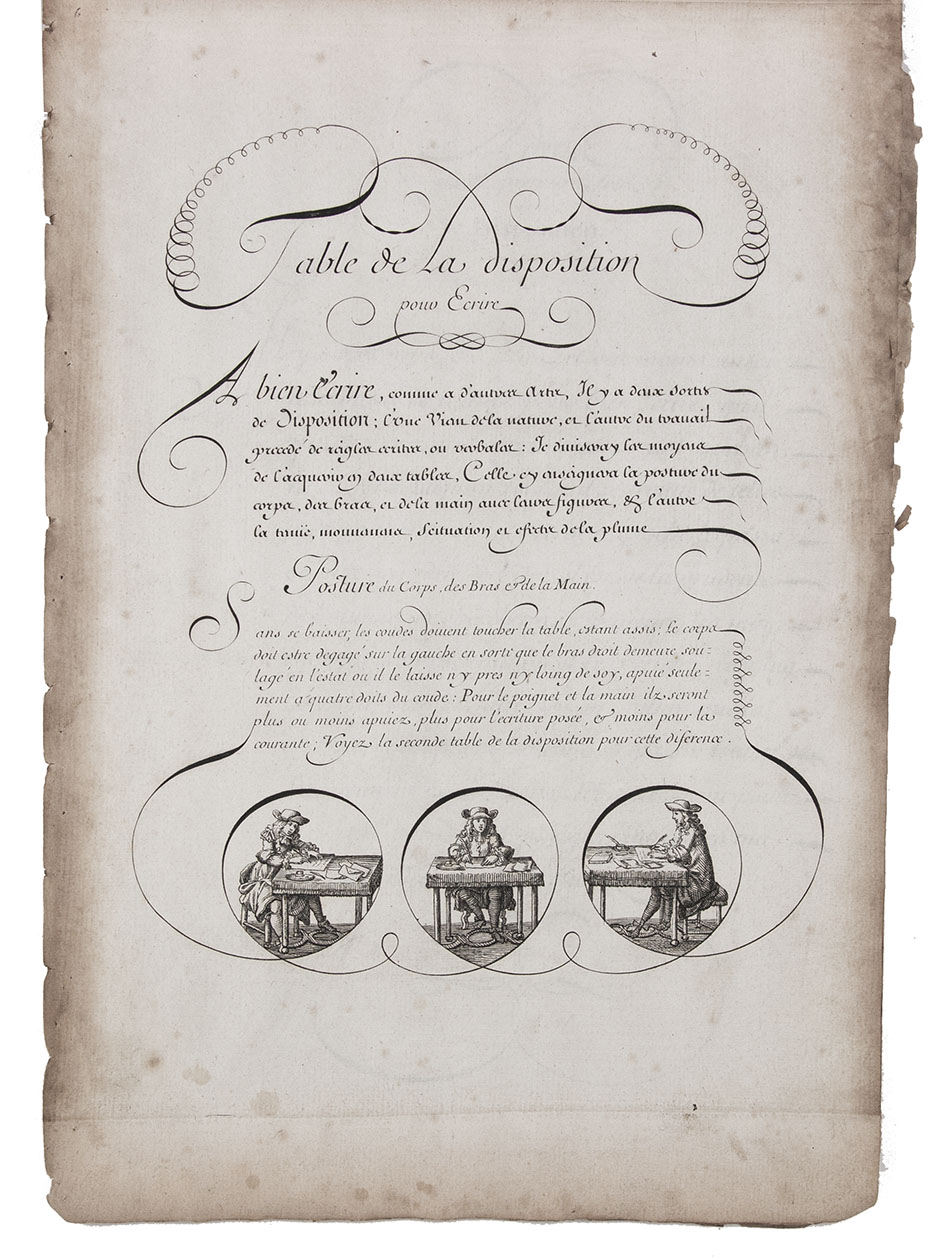 Table de La disposition
pour Ecrire
A bien Ecrire, comme a d'autres Arts, Il y a deux sortes
de Disposition; l'une Vien de la nature, et l'autre du travail
precedé de regles ecrites, ou verbales: Je diviseray les moyens
de l'acquerir en deux tables, Celle-cy enseignera la posture du
corps, des bras, et de la main avec leurs figures, & l'autre
la tenüe, mouvemens, scituation et efects de la plume
Posture du Corps, des Bras & de la Main.
Sans se baisser, les coudes doivent toucher la table, estant assis; Le corps
doit estre degagé sur la gauche en sorte que le bras droit demeure sou-
lagé en l'estat ou il le laisse n'y pres n'y loing de soy, apuié seule-
ment a quatre doits du coude: Pour le poignet et la main ilz seront
plus ou moins apuiez, plus pour l'ecriture posée, & moins pour la
courante; Voyez la seconde table de la disposition pour cette diference.